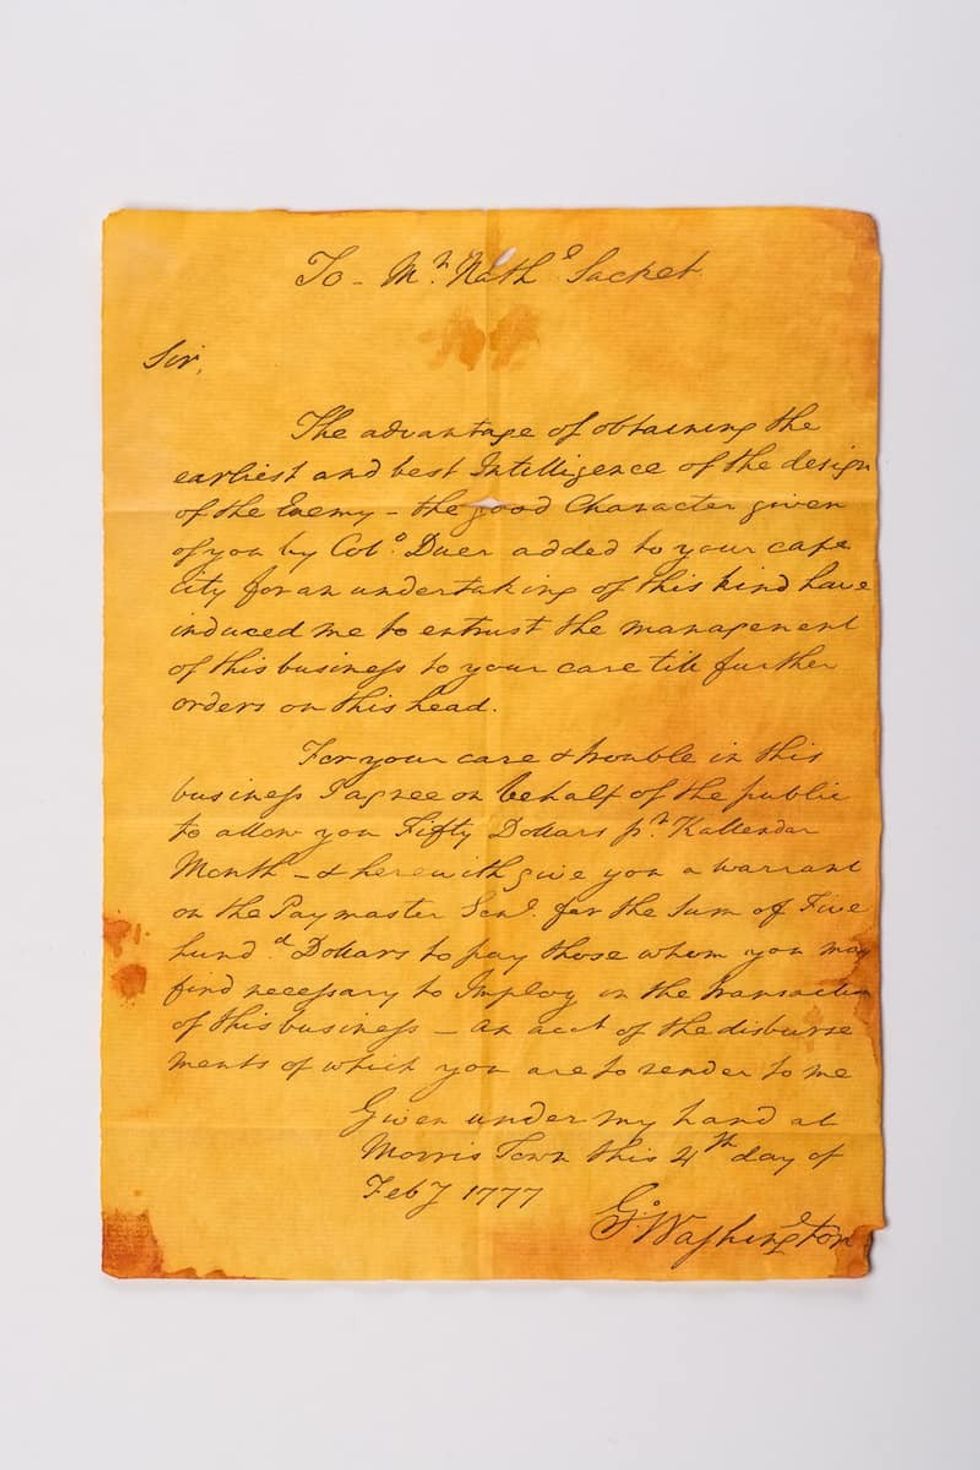 To - Mr. Nathl Sacket
Sir,
The advantage of obtaining the
earliest and best Intelligence of the design
of the Enemy - the good Character given
of you by Colo. Duer added to your capa
city for an undertaking of this kind have
induced me to entrust the management
of this business to your care till further
orders on this head.
For your care & trouble in this
business I agree on behalf of the public
to allow you Fifty Dollars pr. Kallendar
Month - & herewith give you a warrant
on the Paymaster Genl. for the sum of Five
hund.d Dollars to pay those whom you may
find necessary to Imploy in the transaction
of this business - an acct of the disburse
ments of which you are to render to me
Given under my hand at
Morris Town this 4th day of
Feby 1777
Go: Washington